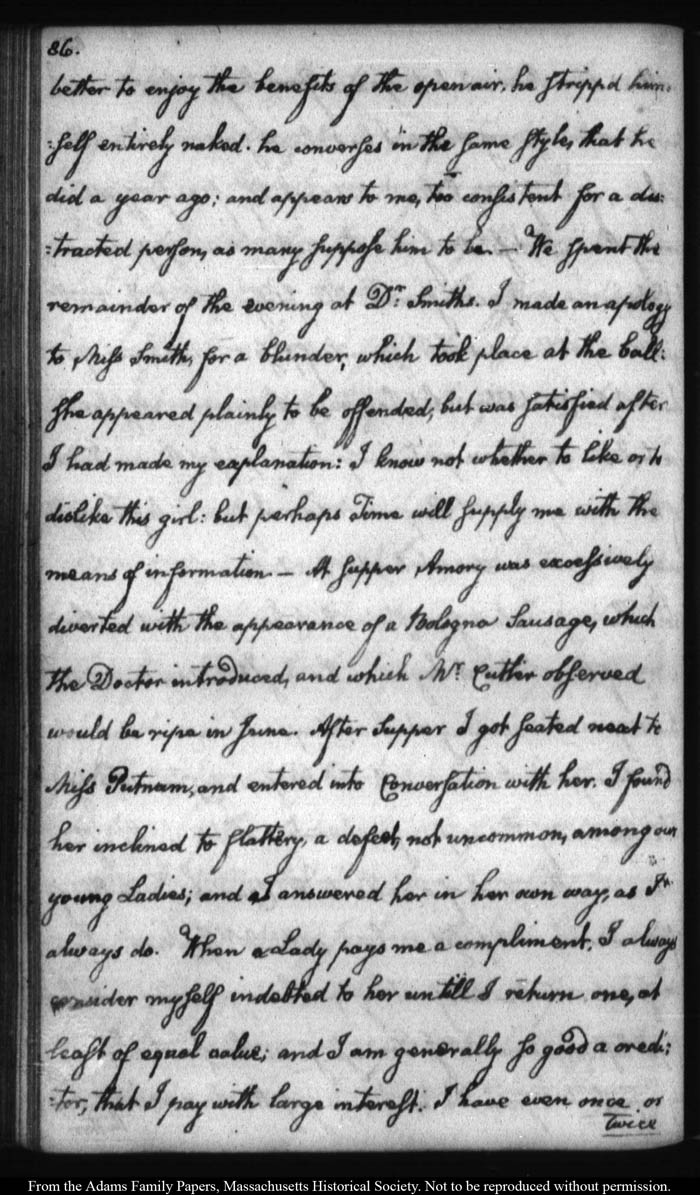 86.
better to enjoy the benefits of the open air, he stripp'd him=
=self entirely naked. he converses in the same style, that he
did a year ago; and appears to me, too consistent for a dis=
=tracted person, as many suppose him to be. — We spent the
remainder of the evening at Dr. Smiths. I made an apology
to Miss Smith, for a blunder, which took place at the ball:
she appeared plainly to be offended, but was satisfied after
I had made my explanation: I know not whether to like or to
dislike this girl: but perhaps Time will supply me with the
means of information — At supper Amory was excessively
diverted with the appearance of a Bologna Sausage, which
the Doctor introduced, and which Mr. Cutler observed
would be ripe in June. After supper I got seated next to
Miss Putnam, and entered into Conversation with her. I found
her inclined to flattery, a defect, not uncommon, among our
young Ladies; and I answered her in her own way, as I
always do. When a Lady pays me a compliment, I always
consider myself indebted to her untill I return one, at
least of equal value; and I am generally so good a credi=
=tor, that I pay with large interest. I have even once or
twice
From the Adams Family Papers, Massachusetts Historical Society. Not to be reproduced without permission.